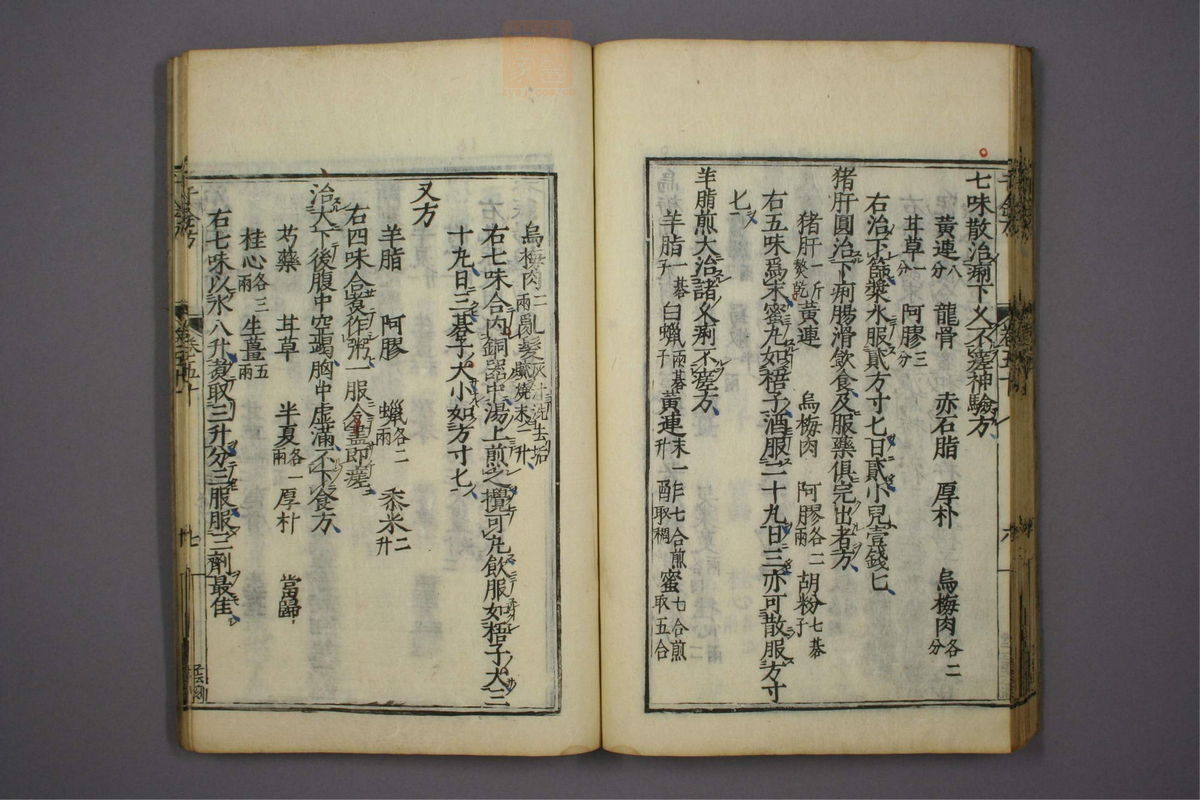 七味散治痢下久不瘥神驗方
黃連八分 龍骨 赤石脂 厚朴 烏梅肉各二分
耳草一分 阿膠三分
右治下篩漿水服貳方寸匕日貳小兒壹錢匕
猪肝圓治下痢腸滑飲食及服藥俱完出者方
猪肝一斤熬乾 黃連 烏梅肉 阿膠各二兩 胡粉七碁子
右五味爲末蜜丸如梧子酒服二十九日三亦可散服方寸
匕
羊脂煎大治諸久痢不瘥方
羊脂一碁子 白蠟兩碁子 黃連末一升 酢七合煎取稠 蜜七合煎取五合
烏梅肉二兩 亂髮灰汁洗去垢膩燒末一升
右七味合內銅器中湯上煎之攪可丸飲服如梧子大三
十九日三碁子大小如方寸匕
又方
羊脂 阿膠 蠟各二兩 黍米二升
右四味合煑作粥一服令盡即瘥
治大下後腹中空竭胸中虛滿不下食方
芍藥 耳草 半夏各一兩 厚朴 當歸
桂心各三兩 生薑五兩
右七味以水八升煑取三升分三服服三劑最佳